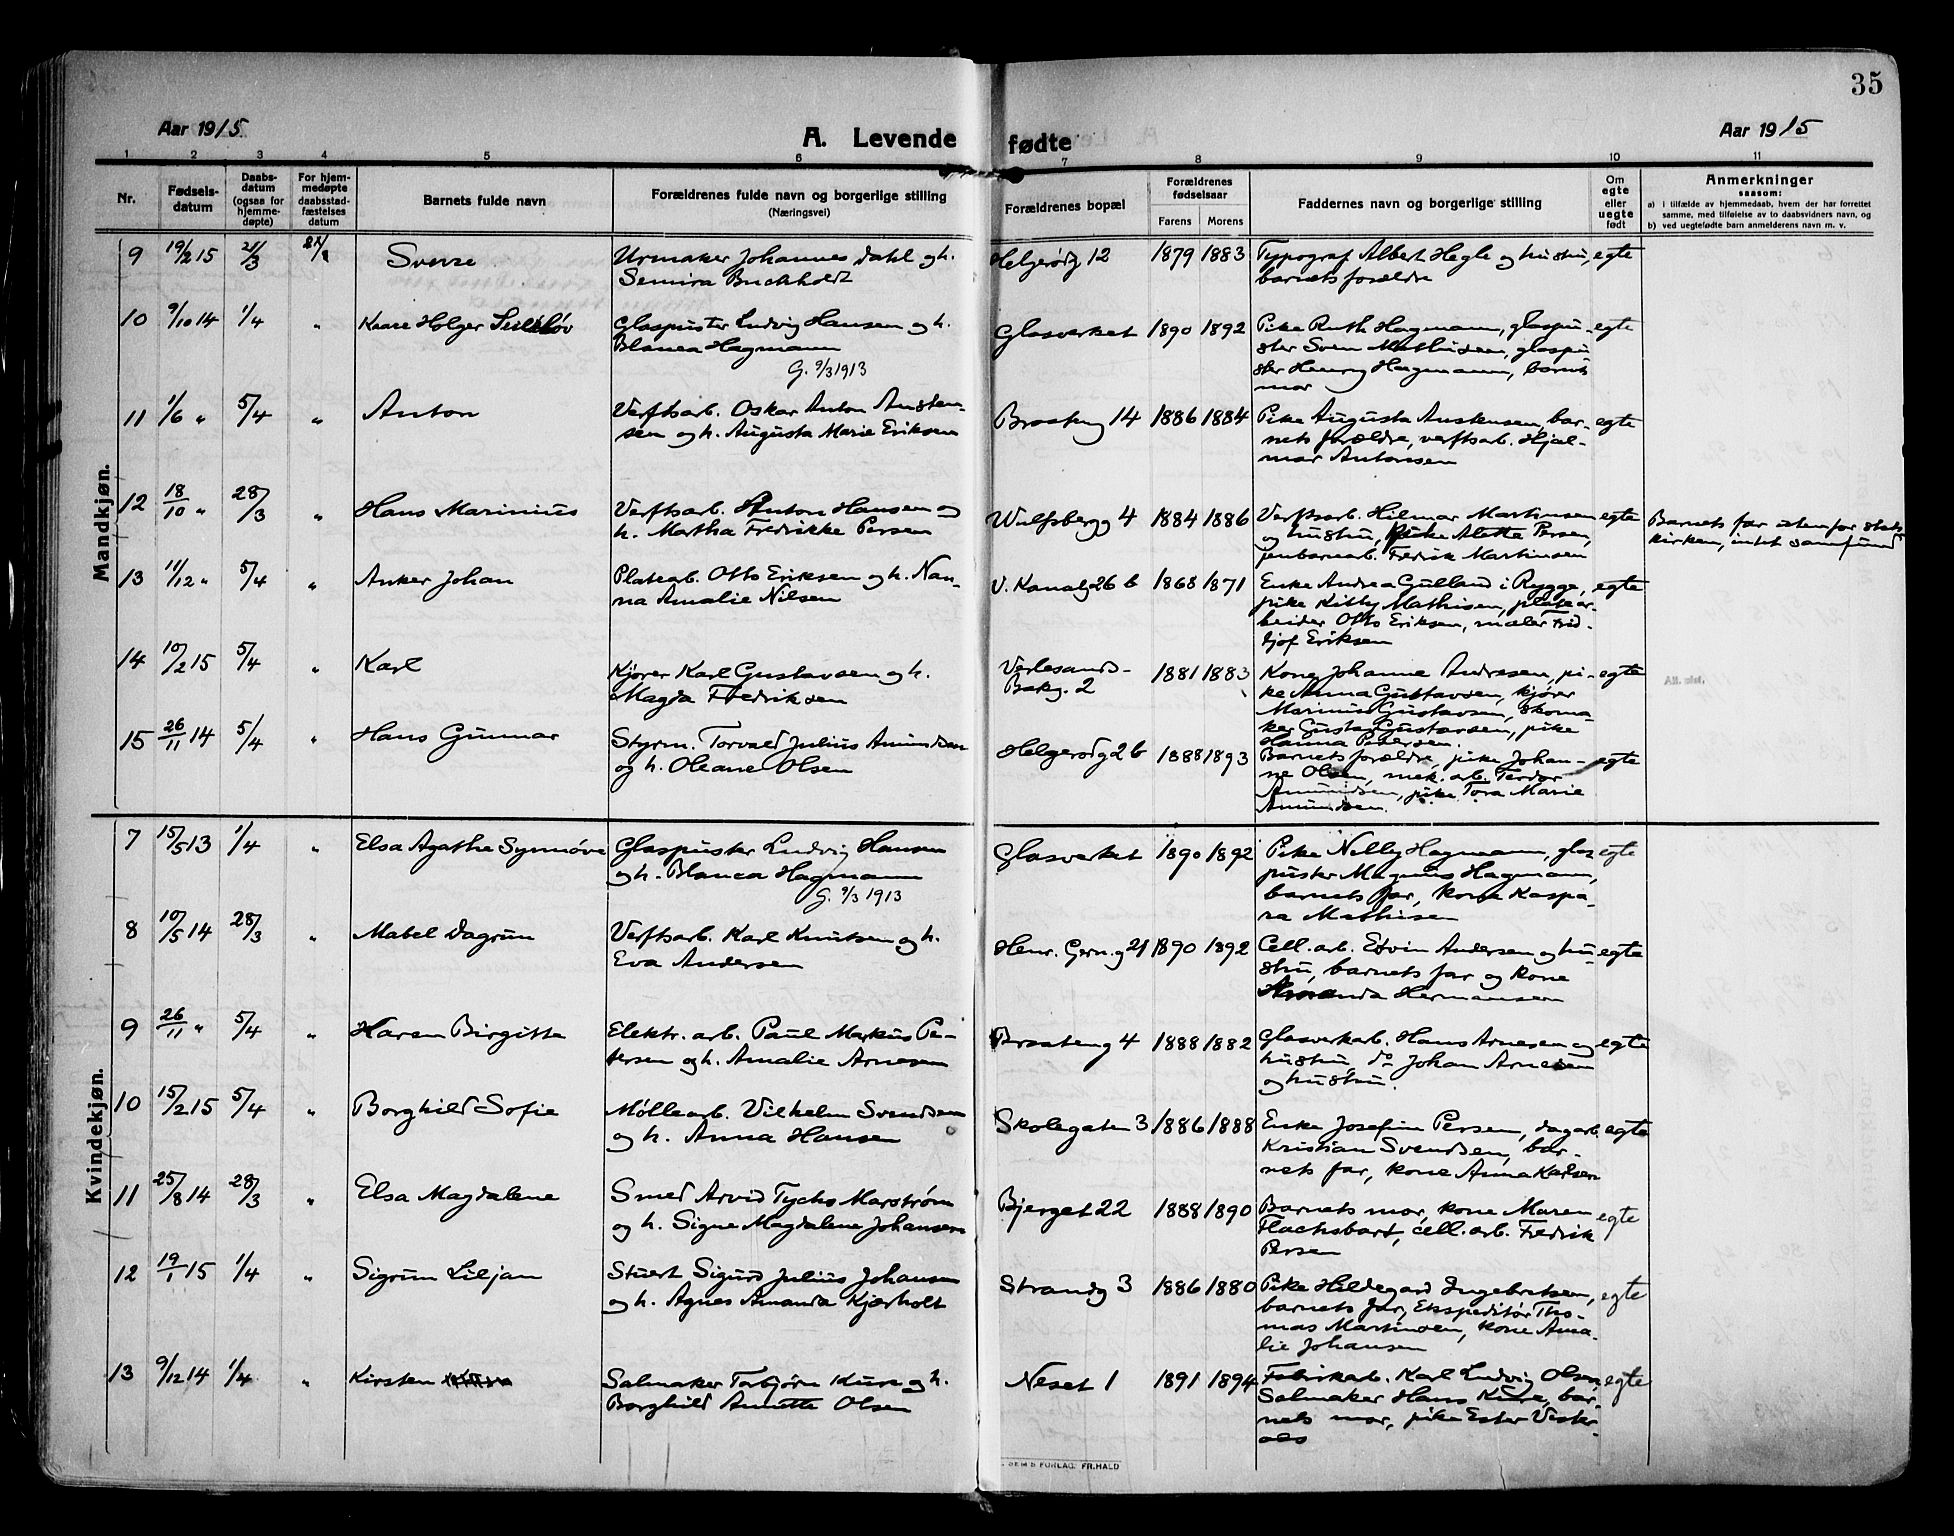 35
Aar 1915
A. Levende fødte
Aar 1915
1 2 3 4 5 6 7 8 9 10 11
Nr.
Fødsels-
datum
Daabs-
datum
(ogsaa for
hjemme-
døpte)
For hjem-
medøpte
daabsstad-
fæstelses
datum
Barnets fulde navn
Forældrenes fulde navn og borgerlige stilling
(Næringsvei)
Forældrenes bopæl
Forældrenes
fødselsaar
Farens Morens
Faddernes navn og borgerlige stilling
Om
egte
eller
uegte
født
Anmerkninger
saasom:
a) i tilfælde av hjemmedaab, hvem der har forrettet
samme, med tilføielse av to daabsvidners navn, og
b) ved uegtefødte barn anmelderens navn m. v.
Mandkjøn.
9 19/2 15 21/3 Sverre
Urmaker Johannes Dahl og h.
Semira Buchholdt
Helgerødg 12 1879 1883
Typograf Albert Hegle og hustru, egte
barnets forældre
10 9/10 14 1/4 " Kaare Holger
Glaspuster Ludvig Hansen og h.
Blanca Hagmann
G. 9/3 1913
Glasverket 1890 1892
Pike Ruth Hagmann, glaspu- egte
ster Sven Mathisen, glaspu
ster Henry Hagmann, barnets
mor
11 1/6 " 5/4 " Anton
Verftsarb. Oskar Anton Austen-
sen og h. Augusta Marie Eriksen
Braateng 14 1886 1884
Pike Augusta Austensen, bar- egte
nets forældre, verftsarb. Hjal-
mar Antonsen
12 18/10 " 28/3 " Hans Marinius
Verftsarb. Anton Hansen og
h. Martha Fredrikke Persen
Wulfsbergg 4 1884 1886
Verftsarb. Hilmar Martinsen egte
og hustru, pike Alette Persen,
jernbanearb. Fredrik Martinsen
Barnets far utenfor stats
kirken, intet samfund
13 11/12 " 5/4 " Anker Johan
Platearb. Otto Eriksen og h. Nan-
na Amalie Nilsen
V. Kanalg 26 b 1868 1871
Enke Andrea Gulland i Rygge, egte
pike Kitty Mathisen, platear-
beider Otto Eriksen, maler Frid-
tjof Eriksen
14 10/2 15 5/4 " Karl
Kjører Karl Gustavsen og h.
Magda Fredriksen
Verlesands-
Bakg. 2 1881 1883
Kone Johanne Andresen, pi- egte
ke Anna Gustavsen, kjører
Marinius Gustavsen, skoma-
ker Gustav Gustavsen, pike
Hanna Pedersen.
Att. utst.
15 26/11 14 5/4 " Hans Gunnar
Styrm. Torvald Julius Amundsen
og h. Oleane Olsen
Helgerødg 26 1888 1893
Barnets forældre, pike Johan- egte
ne Olsen, mek. arb. Teodor
Amundsen, pike Tora Marie
Amundsen.
Kvindekjøn.
7 15/5 13 1/4 " Elsa Agathe Synnøve
Glaspuster Ludvig Hansen
og h. Blanca Hagmann
G. 9/3 1913
Glasverket 1890 1892
Pike Nelly Hagmann, glas egte
puster Magnus Hagmann,
barnets far, kone Kaspa-
ra Mathisen
8 10/5 14 28/3 " Mabel Dagrun
Verftsarb. Karl Knutsen og h.
Eva Andersen
Henr. Gern.g 21 1890 1892
Cell. arb. Edvin Andersen og hu- egte
stru, barnets far og kone
Amanda Hermansen
9 26/11 " 5/4 " Karen Birgitte
Elektr. arb. Paul Markus Pe-
tersen og h. Amalie Arnesen
Braateng 4 1888 1882
Glasverkarb. Hans Arnesen og egte
hustru, do Johan Arnesen
og hustru.
10 15/2 15 5/4 " Borghild Sofie
Møllearb. Vilhelm Svendsen
og h. Anna Hansen
Skolegaten 3 1886 1888
Enke Josefine Persen, dagarb. egte
Kristian Svendsen, bar-
nets far, kone Anna Karlsen
11 25/8 14 28/3 " Elsa Magdalene
Smed Arvid Tycho Marstrøm
og h. Signe Magdalene Johansen
Bjerget 22 1888 1890
Barnets mor, kone Maren egte
Flachsbart, cell. arb. Fredrik
Persen
12 19/1 15 1/4 " Sigrun Liljan
Stuert Sigurd Julius Johansen
og h. Agnes Amanda Kjærholt
Strandg 3 1886 1880
Pike Hildegard Ingebretsen, egte
barnets far, Ekspeditør Tho-
mas Martinsen, kone Ama-
lie Johansen
13 9/12 14 1/4 " Kirsten
Salmaker Torbjørn Kure og h.
Borghild Annette Olsen
Neset 1 1891 1894
Fabrikarb. Karl Ludvig Olsen, egte
Salmaker Hans Kure, bar-
nets mor, pike Ester
FORLAG. FR.HALD